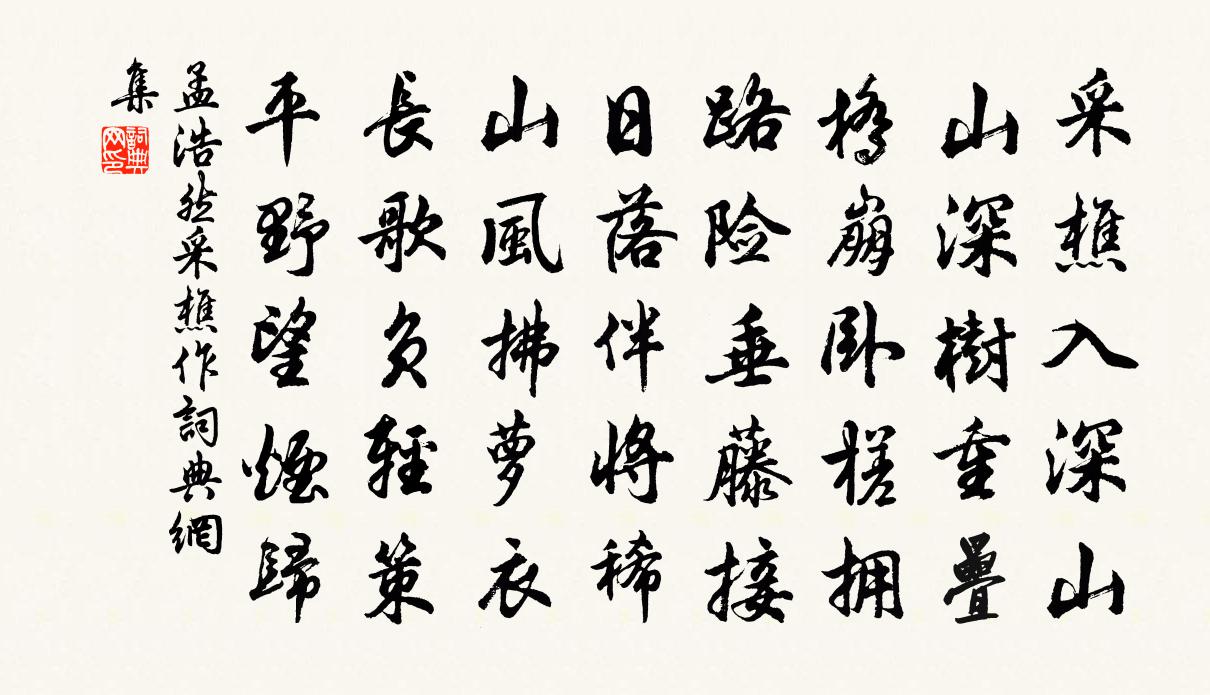 采樵入深山
山深樹重疊
橋崩臥槎拥
路险垂藤接
日落伴將稀
山風拂萝衣
長歌负輕策
平野望煙歸
孟浩然采樵作詞典網
集
詞典网印